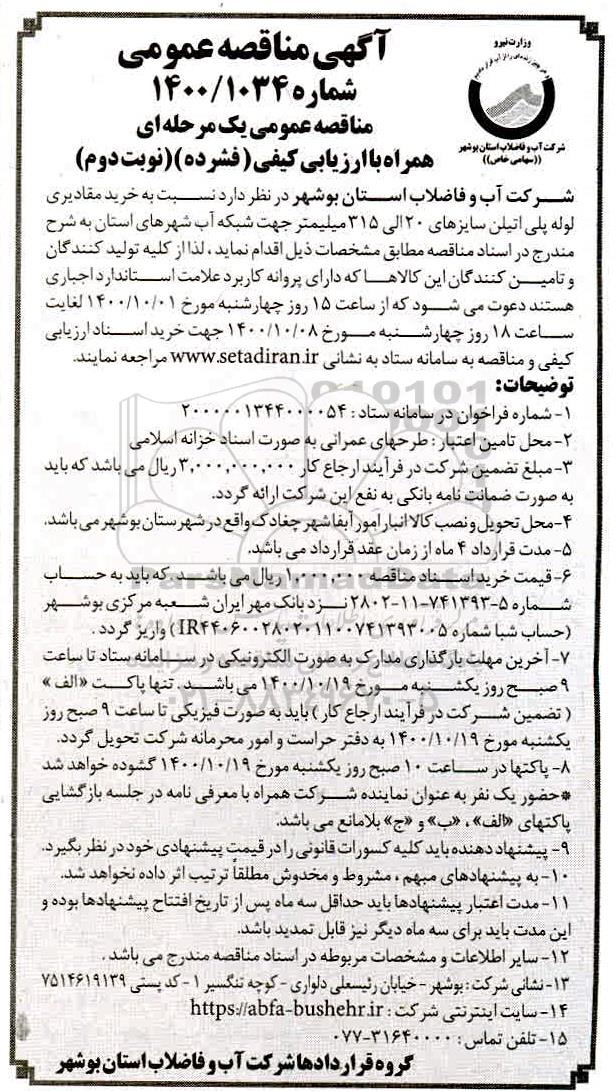 آگهی مناقصه عمومی
شماره ۱۴۰۰/۱۰۳۴
مناقصه عمومی یک مرحله ای
همراه با ارزیابی کیفی (فشرده)(نوبت دوم)
وزارت نیرو
شرکت آب و فاضلاب استان بوشهر
((سهامی خاص))
شرکت آب و فاضلاب استان بوشهر در نظر دارد نسبت به خرید مقادیری
لوله پلی اتیلن سایزهای ۲۰ الی ۳۱۵ میلیمتر جهت شبکه آب شهرهای استان به شرح
مندرج در اسناد مناقصه مطابق مشخصات ذیل اقدام نماید ، لذا از کلیه تولید کنندگان
و تامین کنندگان این کالاها که دارای پروانه کاربرد علامت استاندارد اجباری
هستند دعوت می شود که از ساعت ۱۵ روز چهارشنبه مورخ ۱۴۰۰/۱۰/۰۱ لغایت
ساعت ۱۸ روز چهارشنبه مورخ ۱۴۰۰/۱۰/۰۸ جهت خرید اسناد ارزیابی
کیفی و مناقصه به سامانه ستاد به نشانی www.setadiran.ir مراجعه نمایند.
توضیحات:
۱- شماره فراخوان در سامانه ستاد : ۲۰۰۰۰۰۱۳۴۴۰۰۰۰۵۴
۲- محل تامین اعتبار : طرحهای عمرانی به صورت اسناد خزانه اسلامی
۳- مبلغ تضمین شرکت در فرآیند ارجاع کار ۳,۰۰۰,۰۰۰,۰۰۰ ریال می باشد که باید
به صورت ضمانت نامه بانکی به نفع این شرکت ارائه گردد.
۴- محل تحویل و نصب کالا انبار امور آبفا شهر چغادک واقع در شهرستان بوشهر می باشد.
۵- مدت قرارداد ۴ ماه از زمان عقد قرارداد می باشد.
۶- قیمت خرید اسناد مناقصه ۱,۰۰۰,۰۰۰ ریال می باشد. که باید به حساب
شماره ۵-۷۴۱۳۹۳-۱۱-۲۸۰۲ نزد بانک مهر ایران شعبه مرکزی بوشهر
(حساب شبا شماره IR۴۴۰۶۰۰۲۸۰۲۰۱۱۰۰۷۴۱۳۹۳۰۰۵) واریز گردد .
۷- آخرین مهلت بارگذاری مدارک به صورت الکترونیکی در سامانه ستاد تا ساعت
۹ صبح روز یکشنبه مورخ ۱۴۰۰/۱۰/۱۹ می باشد. تنها پاکت «الف»
( تضمین شرکت در فرآیند ارجاع کار ) باید به صورت فیزیکی تا ساعت ۹ صبح روز
یکشنبه مورخ ۱۴۰۰/۱۰/۱۹ به دفتر حراست و امور محرمانه شرکت تحویل گردد.
۸- پاکتها در ساعت ۱۰ صبح روز یکشنبه مورخ ۱۴۰۰/۱۰/۱۹ گشوده خواهد شد
*حضور یک نفر به عنوان نماینده شرکت همراه با معرفی نامه در جلسه بازگشایی
پاکتهای «الف» ، «ب» و «ج» بلامانع می باشد.
۹- پیشنهاد دهنده باید کلیه کسورات قانونی را در قیمت پیشنهادی خود در نظر بگیرد.
۱۰- به پیشنهادهای مبهم ، مشروط و مخدوش مطلقاً ترتیب اثر داده نخواهد شد.
۱۱- مدت اعتبار پیشنهادها باید حداقل سه ماه پس از تاریخ افتتاح پیشنهادها بوده و
این مدت باید برای سه ماه دیگر نیز قابل تمدید باشد.
۱۲- سایر اطلاعات و مشخصات مربوطه در اسناد مناقصه مندرج می باشد .
۱۳- نشانی شرکت : بوشهر - خیابان رئیسعلی دلواری - کوچه تنگسیر ۱ - کد پستی ۷۵۱۴۶۱۹۱۳۹
۱۴- سایت اینترنتی شرکت : https://abfa-bushehr.ir
۱۵- تلفن تماس : ۳۱۶۴۰۰۰۰-۰۷۷
گروه قراردادها شرکت آب و فاضلاب استان بوشهر